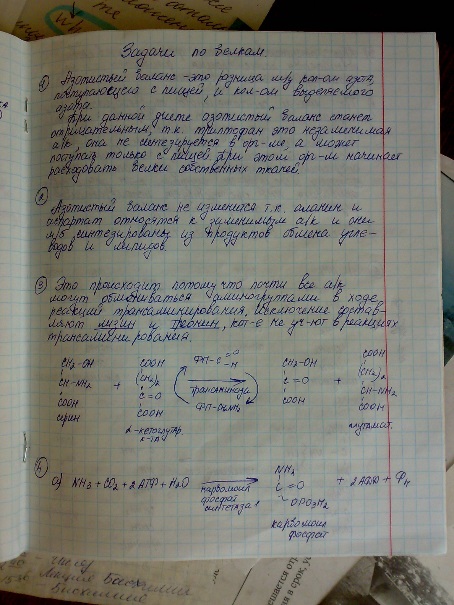 Задачи по белкам
① Азотистый баланс - это разница м/у кол-ом азота,
поступающего с пищей, и кол-ом выделяемого
азота.
При данной диете азотистый баланс станет
отрицательным, т.к. триптофан это незаменимая
а/к, она не синтезируется в орг-ме, а может
поступать только с пищей. При этом орг-м начинает
расходовать белки собственных тканей.
② Азотистый баланс не изменится т.к. аланин и
аспартат относятся к заменимым а/к и они
м/б синтезированы из продуктов обмена угле-
водов и липидов.
③ Это происходит потому что почти все а/к
могут обмениваться аминогруппами в ходе
реакций трансаминирования, исключение состав-
ляют лизин и треонин, кот-е не уч-ют в реакциях
трансаминирования.
CH2-OH
CH-NH2
COOH
серин
+
COOH
(CH2)2
C=O
COOH
α-кетоглутар.
к-та
трансаминаза
CH2-OH
C=O
COOH
+
COOH
(CH2)2
CH-NH2
COOH
глутамат.
а) NH3 + CO2 + 2АТФ + H2O
карбомоил
фосфат
синтетаза 1
NH2
C=O
~OPO3H2
карбомоил
фосфат
+ 2АДФ + Фн